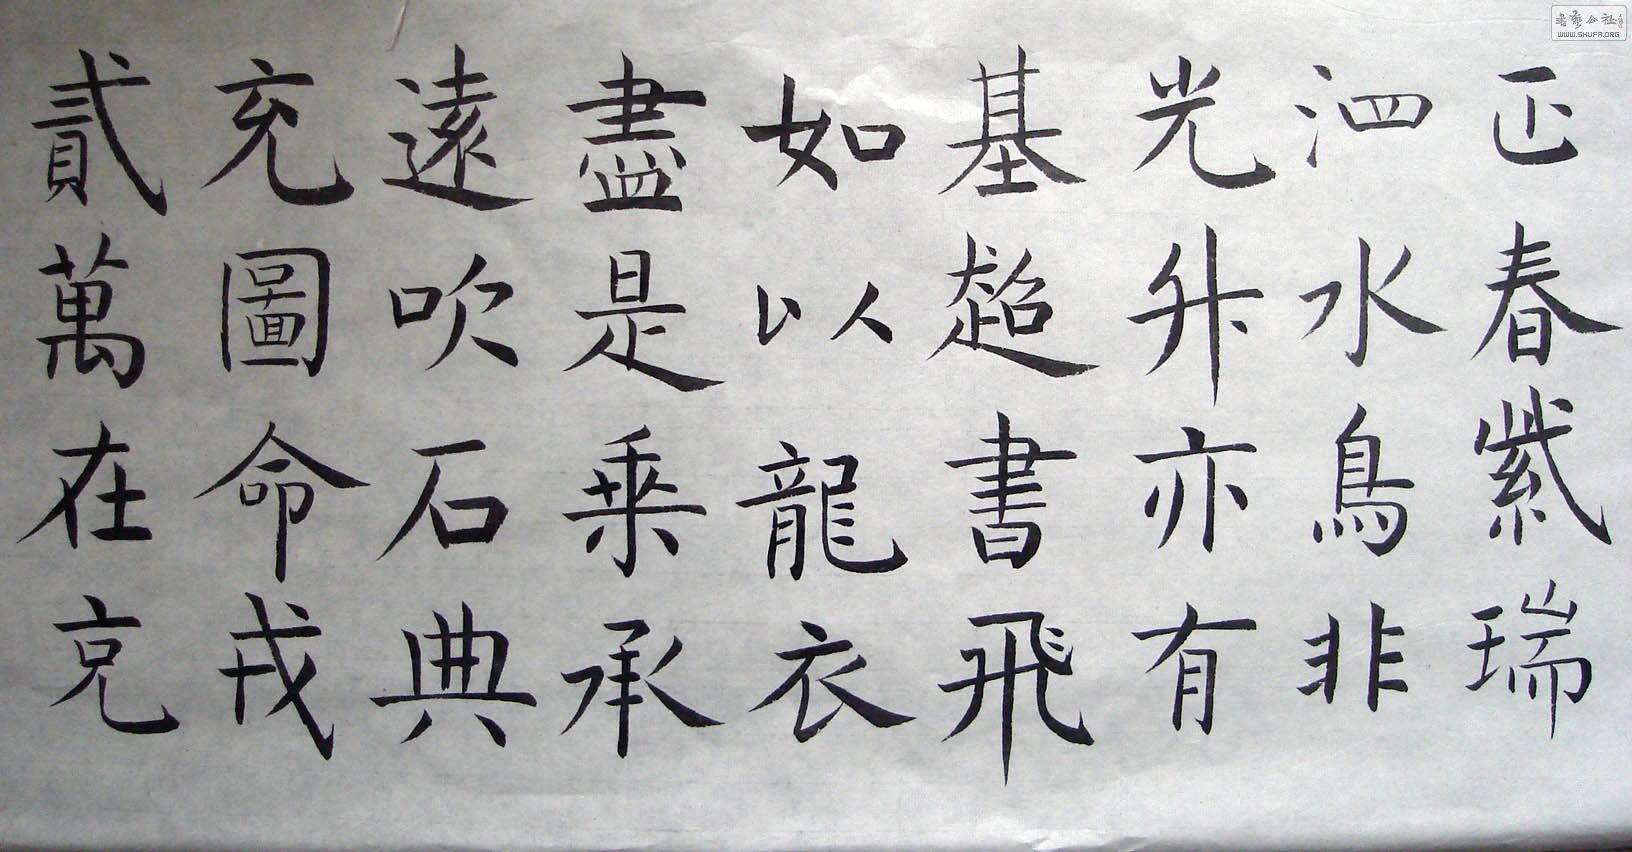 正春紫瑞
泗水鳥非
光升亦有
基超書飛
如以龍衣
盡是乗承
遠吹石典
充圖命戎
貳萬在克
WWW.SHUFA.ORG